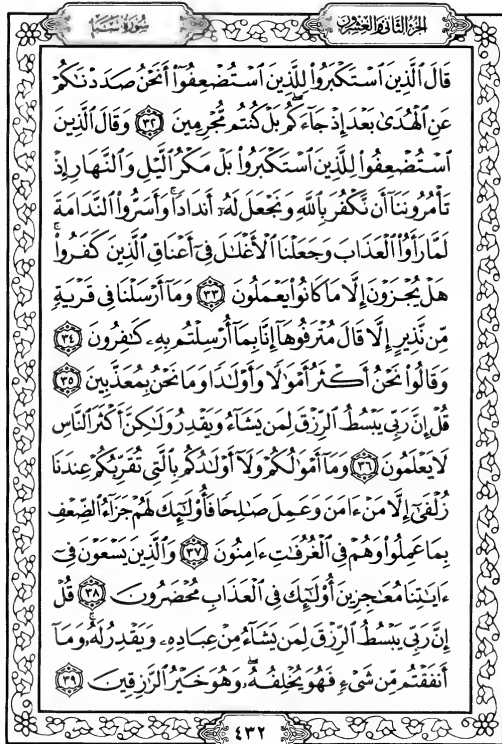 الجزء الثاني والعشرون
سورة سبأ
قَالَ ٱلَّذِينَ ٱسۡتَكۡبَرُواْ لِلَّذِينَ ٱسۡتُضۡعِفُوٓاْ أَنَحۡنُ صَدَدۡنَٰكُمۡ
عَنِ ٱلۡهُدَىٰ بَعۡدَ إِذۡ جَآءَكُمۖ بَلۡ كُنتُم مُّجۡرِمِينَ ٣٢ وَقَالَ ٱلَّذِينَ
ٱسۡتُضۡعِفُواْ لِلَّذِينَ ٱسۡتَكۡبَرُواْ بَلۡ مَكۡرُ ٱلَّيۡلِ وَٱلنَّهَارِ إِذۡ
تَأۡمُرُونَنَآ أَن نَّكۡفُرَ بِٱللَّهِ وَنَجۡعَلَ لَهُۥٓ أَندَادٗاۚ وَأَسَرُّواْ ٱلنَّدَامَةَ
لَمَّا رَأَوُاْ ٱلۡعَذَابَ وَجَعَلۡنَا ٱلۡأَغۡلَٰلَ فِيٓ أَعۡنَاقِ ٱلَّذِينَ كَفَرُواْۖ
هَلۡ يُجۡزَوۡنَ إِلَّا مَا كَانُواْ يَعۡمَلُونَ ٣٣ وَمَآ أَرۡسَلۡنَا فِي قَرۡيَةٖ
مِّن نَّذِيرٍ إِلَّا قَالَ مُتۡرَفُوهَآ إِنَّا بِمَآ أُرۡسِلۡتُم بِهِۦ كَٰفِرُونَ ٣٤
وَقَالُواْ نَحۡنُ أَكۡثَرُ أَمۡوَٰلٗا وَأَوۡلَٰدٗا وَمَا نَحۡنُ بِمُعَذَّبِينَ ٣٥
قُلۡ إِنَّ رَبِّي يَبۡسُطُ ٱلرِّزۡقَ لِمَن يَشَآءُ وَيَقۡدِرُ وَلَٰكِنَّ أَكۡثَرَ ٱلنَّاسِ
لَا يَعۡلَمُونَ ٣٦ وَمَآ أَمۡوَٰلُكُمۡ وَلَآ أَوۡلَٰدُكُم بِٱلَّتِي تُقَرِّبُكُمۡ عِندَنَا
زُلۡفَىٰٓ إِلَّا مَنۡ ءَامَنَ وَعَمِلَ صَٰلِحٗا فَأُوْلَٰٓئِكَ لَهُمۡ جَزَآءُ ٱلضِّعۡفِ
بِمَا عَمِلُواْ وَهُمۡ فِي ٱلۡغُرُفَٰتِ ءَامِنُونَ ٣٧ وَٱلَّذِينَ يَسۡعَوۡنَ فِيٓ
ءَايَٰتِنَا مُعَٰجِزِينَ أُوْلَٰٓئِكَ فِي ٱلۡعَذَابِ مُحۡضَرُونَ ٣٨ قُلۡ
إِنَّ رَبِّي يَبۡسُطُ ٱلرِّزۡقَ لِمَن يَشَآءُ مِنۡ عِبَادِهِۦ وَيَقۡدِرُ لَهُۥۚ وَمَآ
أَنفَقۡتُم مِّن شَيۡءٖ فَهُوَ يُخۡلِفُهُۥۖ وَهُوَ خَيۡرُ ٱلرَّٰزِقِينَ ٣٩
٤٣٢